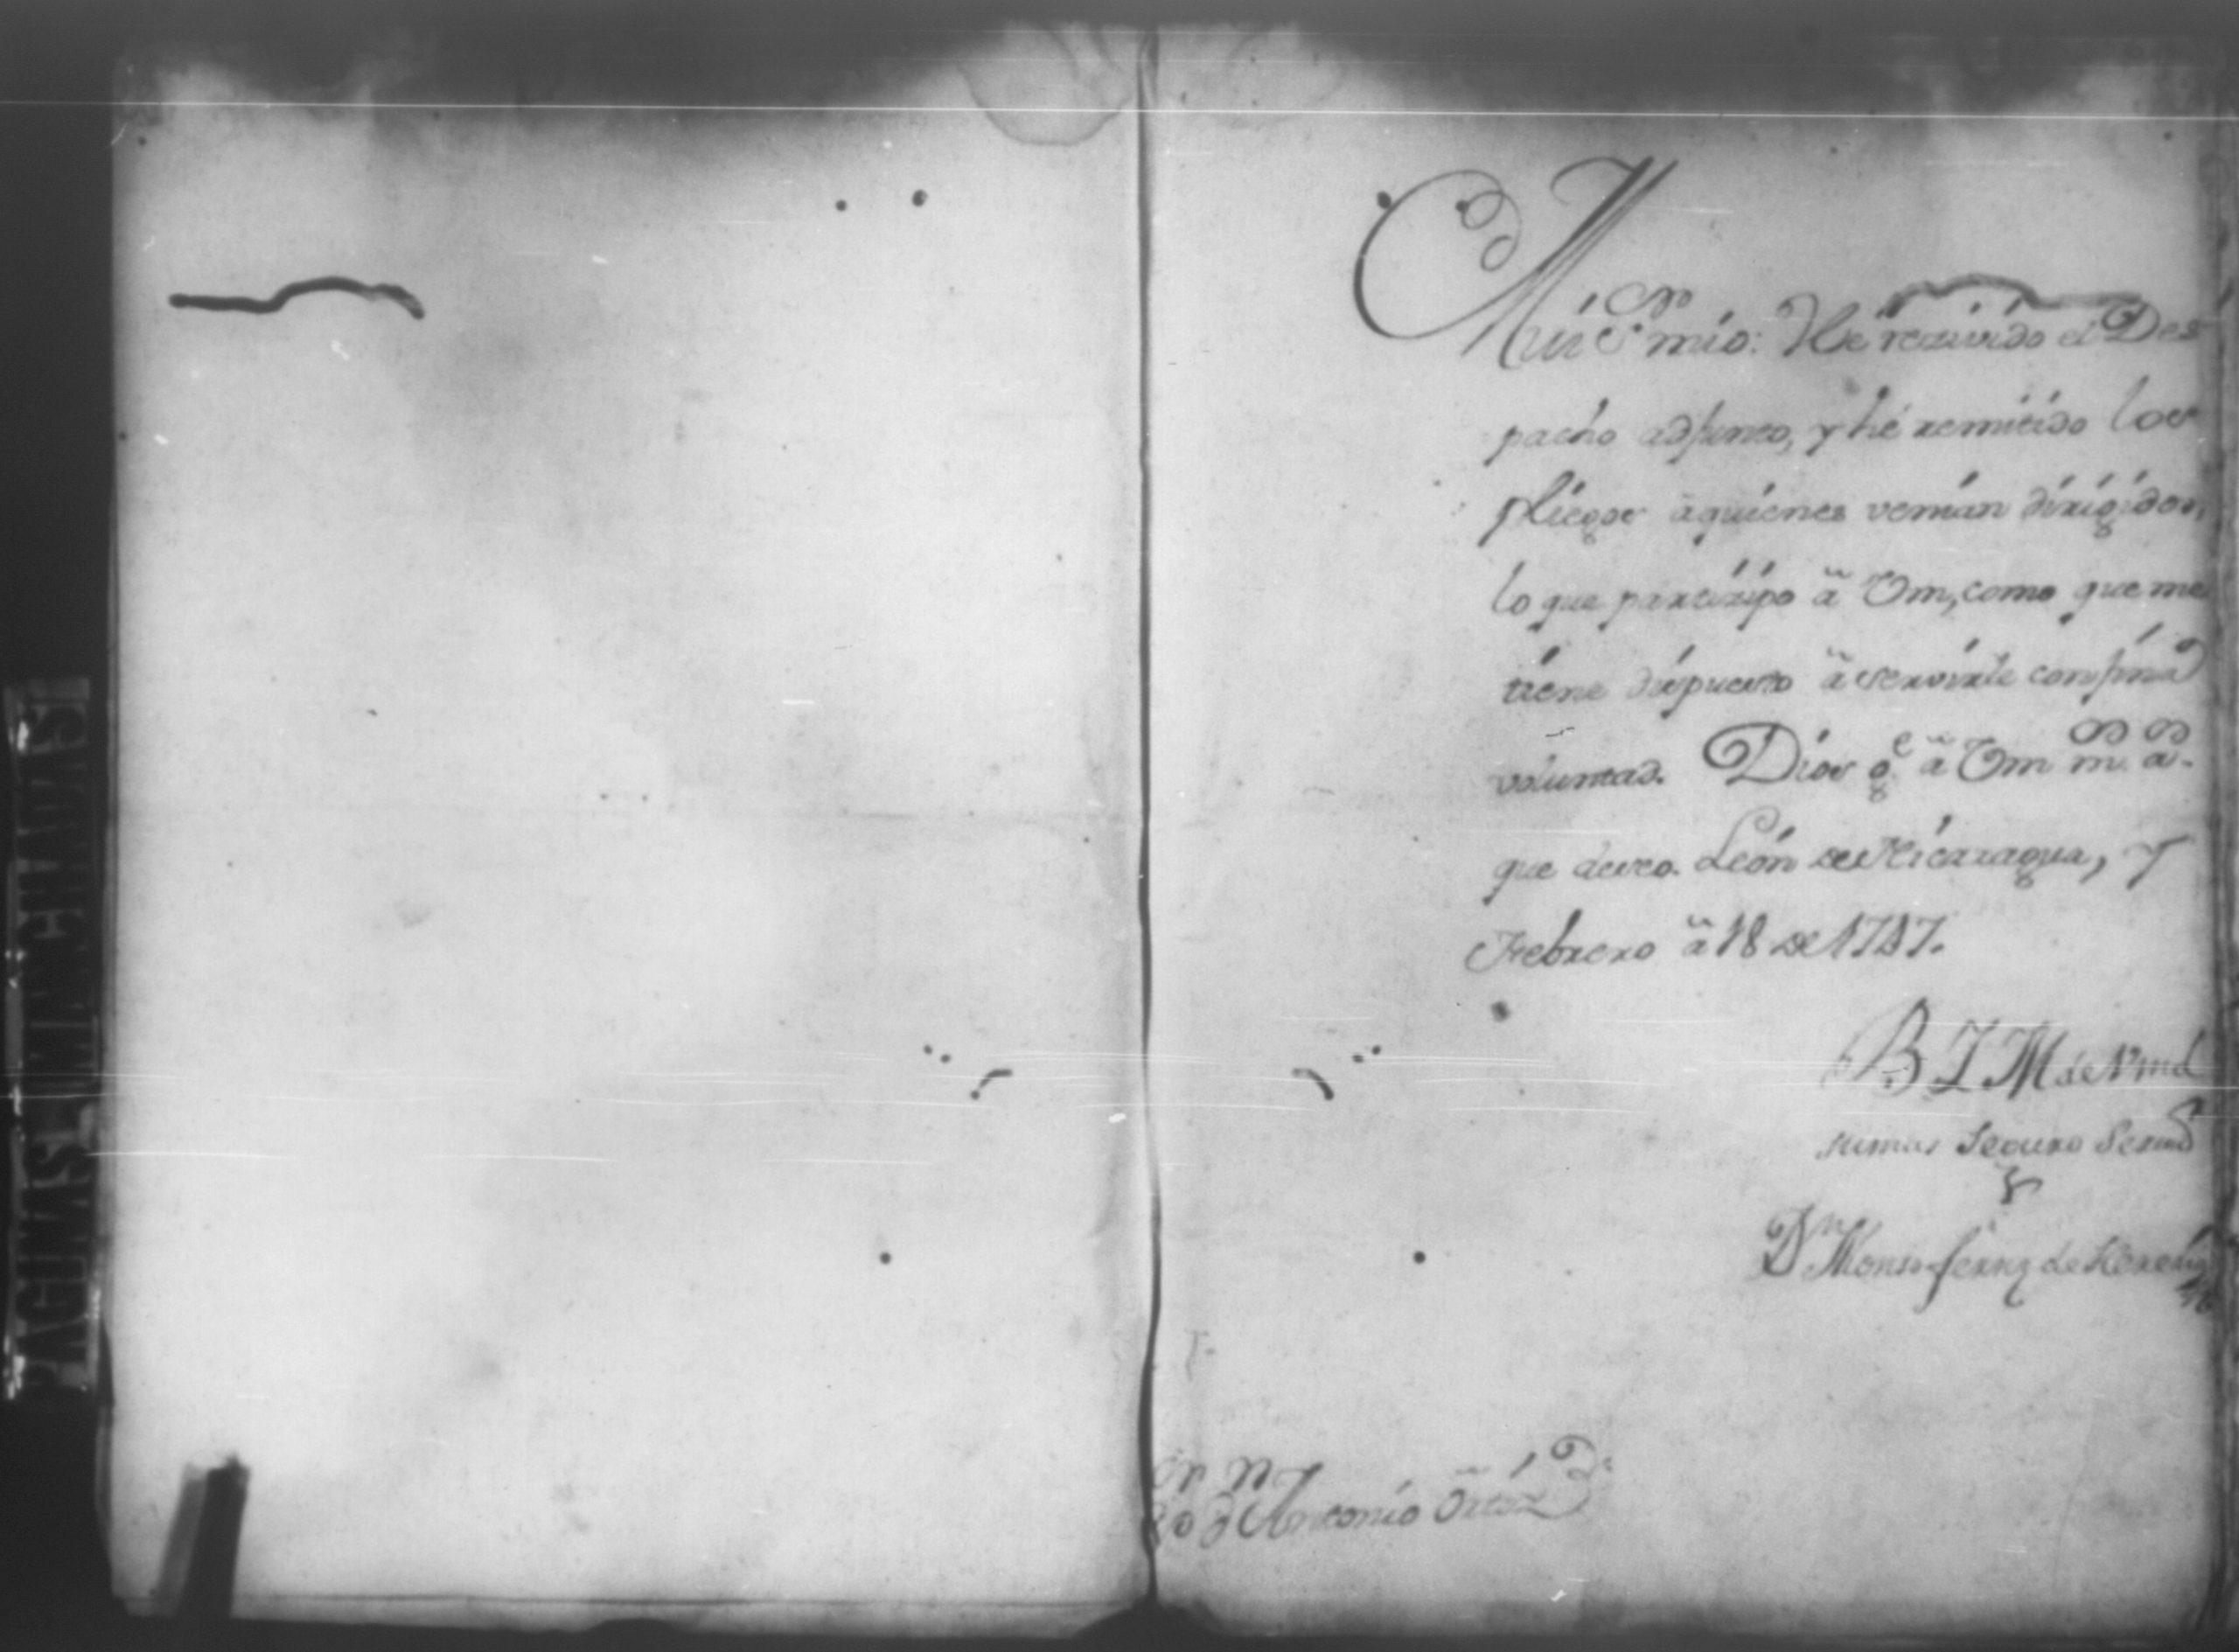 Mui S.or mio: He recivido el Des
pacho adjunto, y hé remitido los
pliegos à quienes venian dirigidos,
lo que participo à Vm, como que me
tiene dispuesto à servirle con fina
voluntad. Dios g.e à Vm m.s a.s
que deseo. León de Nicaragua, y
Febrero à 18 de 1747.
B L M de Vmd
su mas Seguro Serv.or
Dn Alonso fernz de Heredia
Sr Dn Antonio Ortiz
PAGINAS MANCHADAS